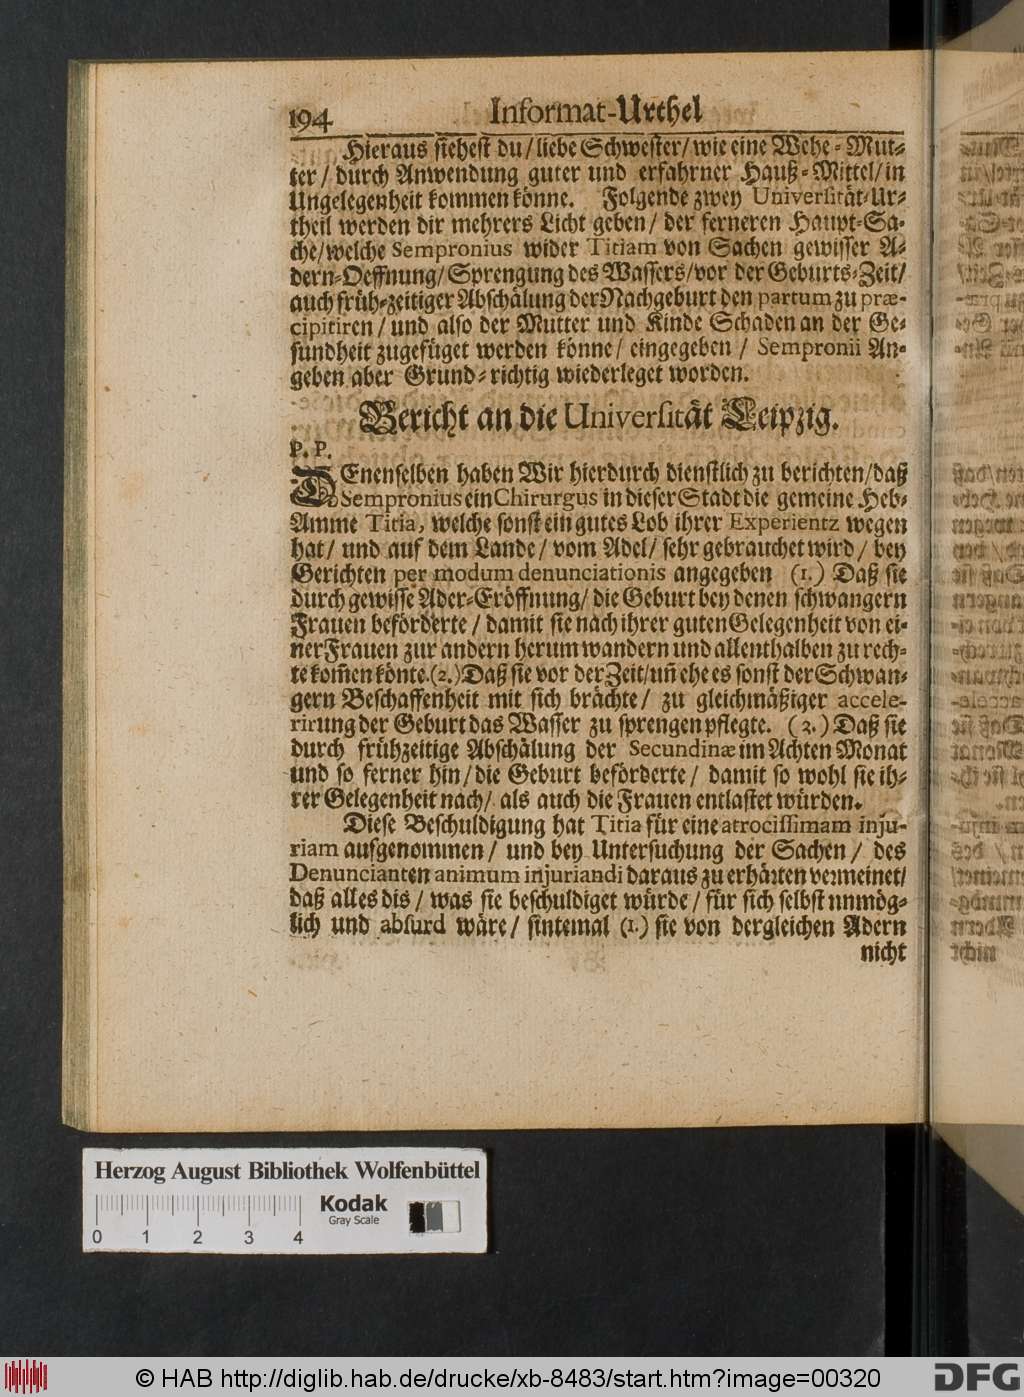 194 Informat-Urthel
Hieraus siehest du/ liebe Schwester/ wie eine Wehe-Mut-
ter / durch Anwendung guter und erfahrner Hauß-Mittel/ in
Ungelegenheit kommen könne. Folgende zwey Universität-Ur-
theil werden dir mehrers Licht geben / der ferneren Haupt-Sa-
che/ welche Sempronius wider Titiam von Sachen gewisser A-
dern-Oeffnung/ Sprengung des Wassers/ vor der Geburts-Zeit/
auch früh-zeitiger Abschälung der Nachgeburt den partum zu præ-
cipitiren / und also der Mutter und Kinde Schaden an der Ge-
sundheit zugefüget werden könne/ eingegeben / Sempronii An-
geben aber Grund-richtig wiederleget worden.
Bericht an die Universität Leipzig.
P. P.
DEnenselben haben Wir hierdurch dienstlich zu berichten/ daß
Sempronius ein Chirurgus in dieser Stadt die gemeine Heb-
Amme Titia, welche sonst ein gutes Lob ihrer Experientz wegen
hat/ und auf dem Lande / vom Adel/ sehr gebrauchet wird / bey
Gerichten per modum denunciationis angegeben (1.) Daß sie
durch gewisse Ader-Eröffnung/ die Geburt bey denen schwangern
Frauen beförderte / damit sie nach ihrer guten Gelegenheit von ei-
ner Frauen zur andern herum wandern und allenthalben zu rech-
te kom̃en könte. (2.) Daß sie vor der Zeit/ un̄ ehe es sonst der Schwan-
gern Beschaffenheit mit sich brächte / zu gleichmäßiger accele-
rirung der Geburt das Wasser zu sprengen pflegte. (3.) Daß sie
durch frühzeitige Abschälung der Secundinæ im Achten Monat
und so ferner hin/ die Geburt beförderte / damit so wohl sie ih-
rer Gelegenheit nach/ als auch die Frauen entlastet würden.
Diese Beschuldigung hat Titia für eine atrocissimam inju-
riam aufgenommen / und bey Untersuchung der Sachen / des
Denuncianten animum injuriandi daraus zu erhärten vermeinet/
daß alles dis / was sie beschuldiget würde / für sich selbst unmög-
lich und absurd wäre / sintemal (1.) sie von dergleichen Adern
nicht
Herzog August Bibliothek Wolfenbüttel
Kodak
Gray Scale
0 1 2 3 4
© HAB http://diglib.hab.de/drucke/xb-8483/start.htm?image=00320
DFG